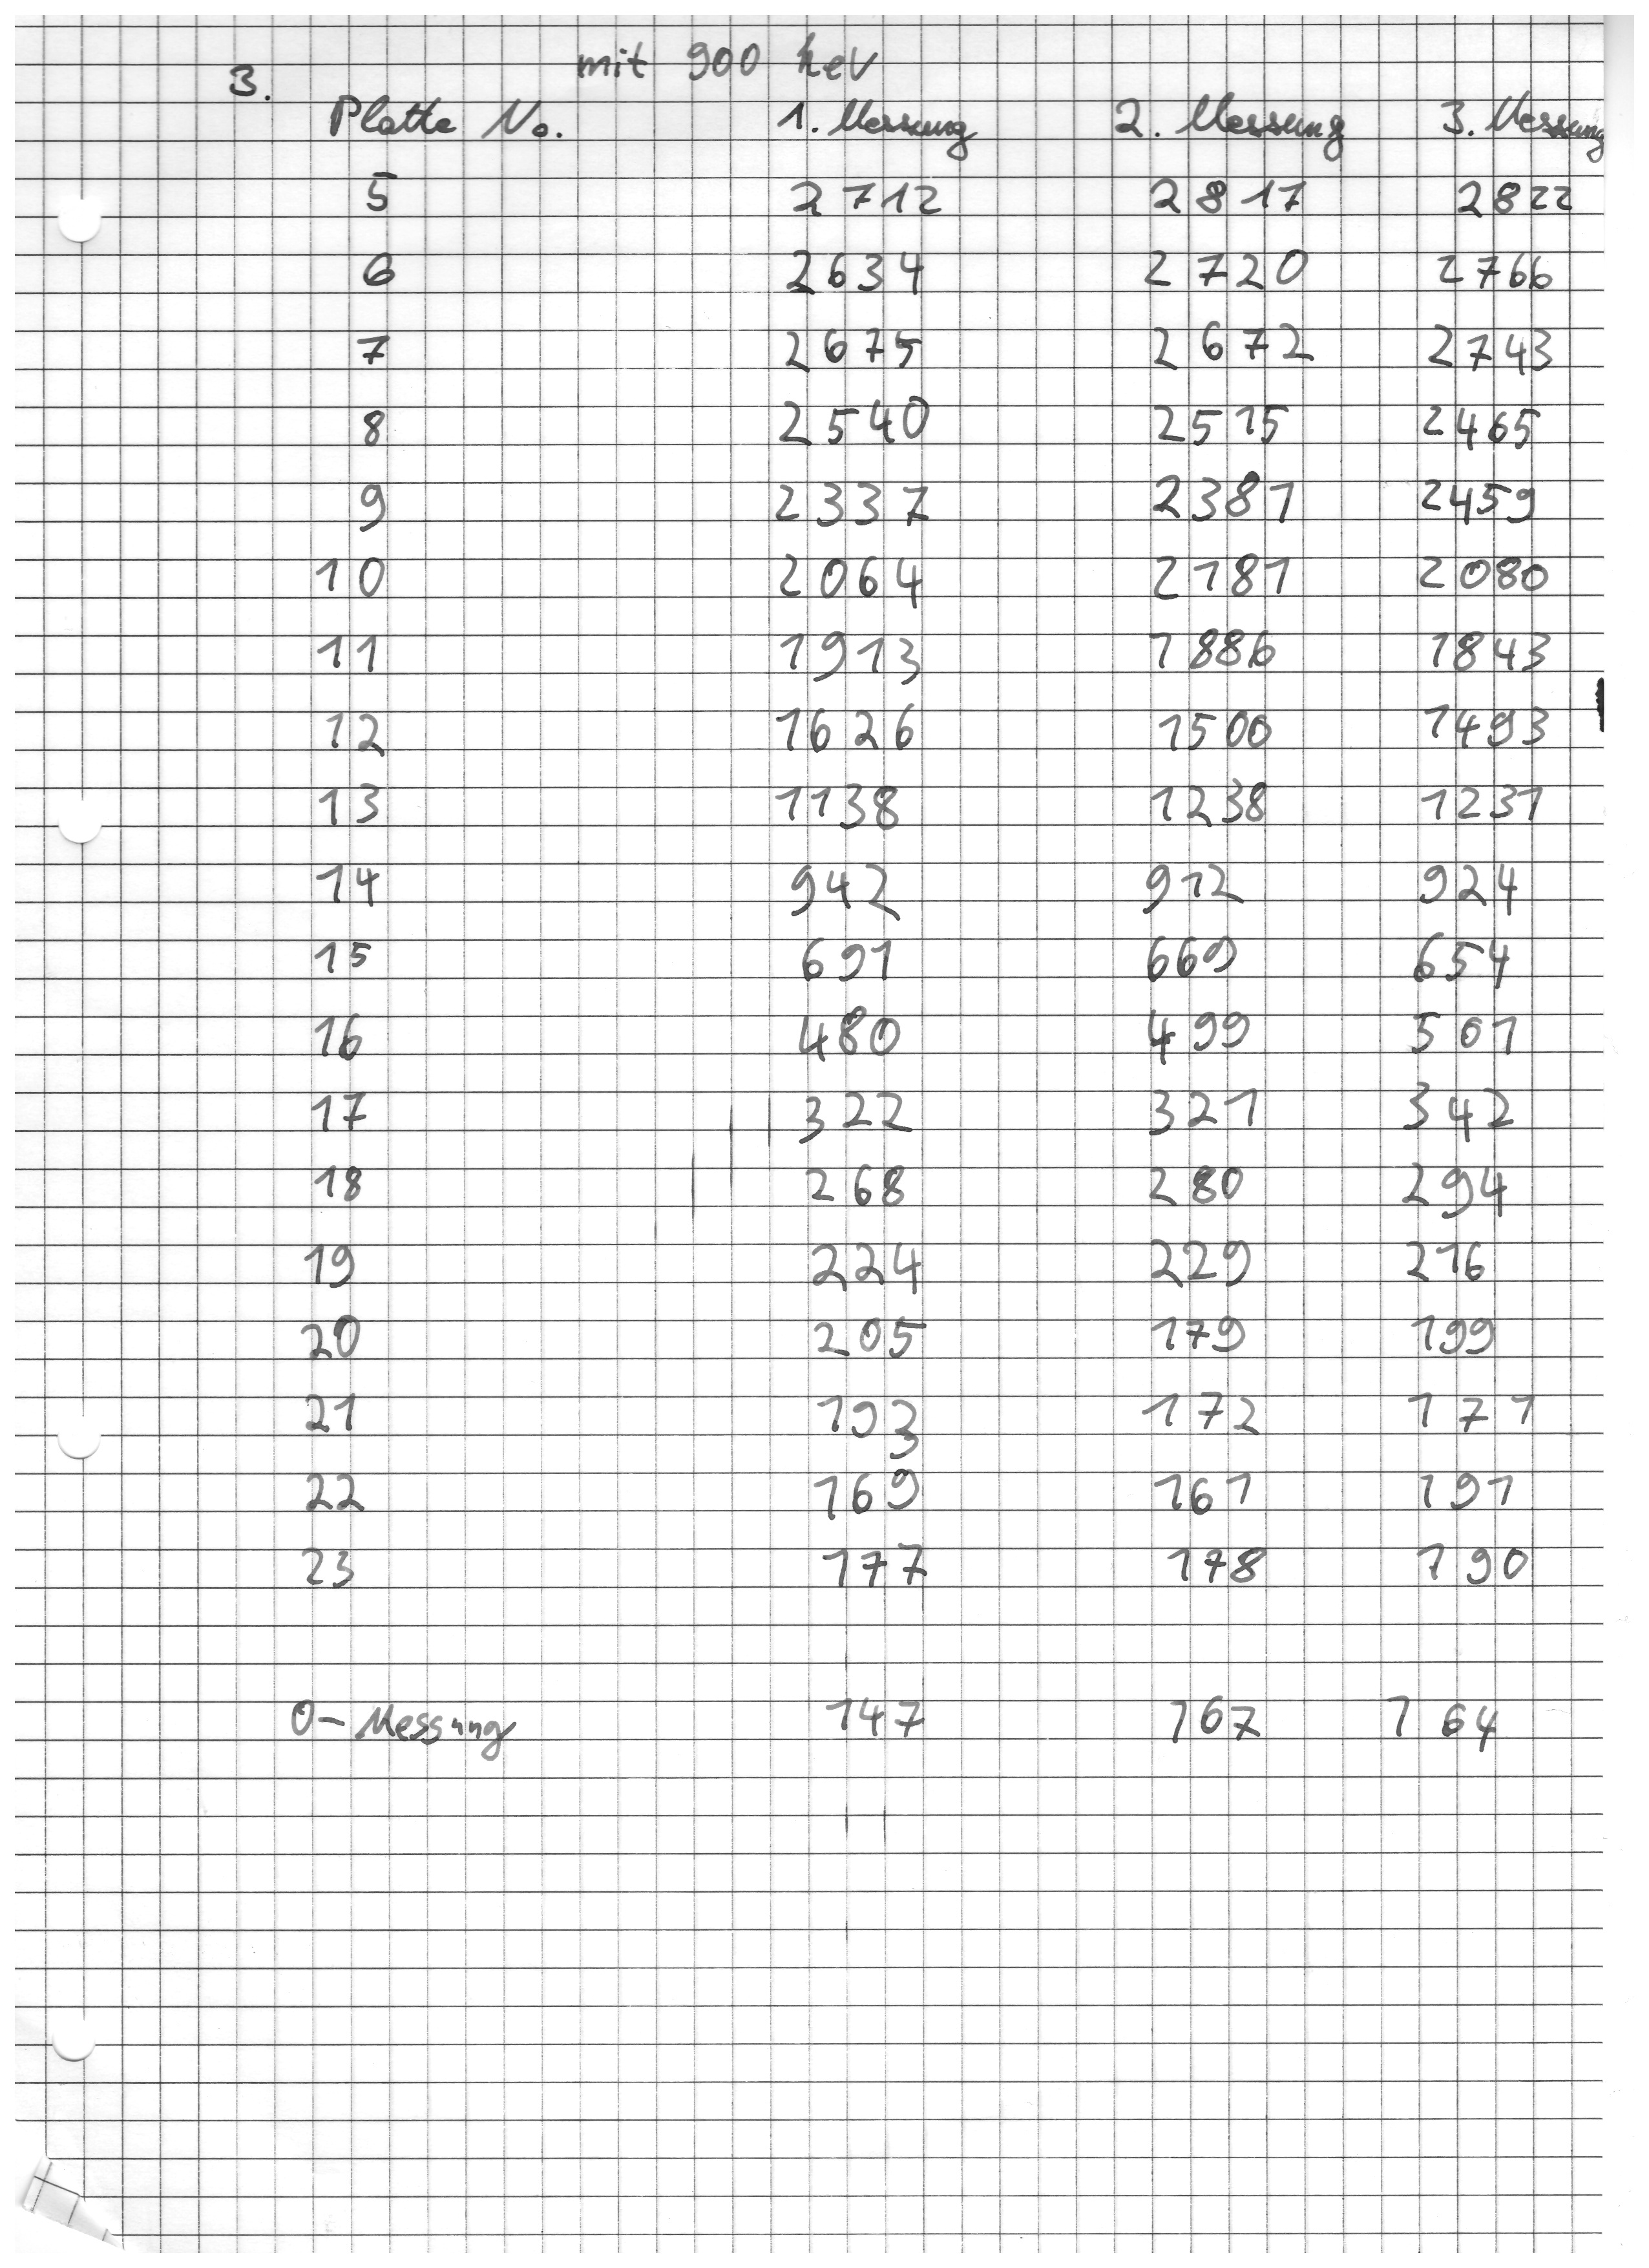 mit 900 keV
3.
Platte No. 1. Messung 2. Messung 3. Messung
5 2712 2817 2822
6 2634 2720 2766
7 2675 2672 2743
8 2540 2515 2465
9 2337 2381 2459
10 2064 2181 2080
11 1913 1886 1843
12 1626 1500 1493
13 1138 1238 1231
14 942 912 924
15 691 669 654
16 480 499 501
17 322 321 342
18 268 280 294
19 224 229 216
20 205 179 199
21 193 172 171
22 169 161 191
23 177 178 190
0-Messung 147 167 164